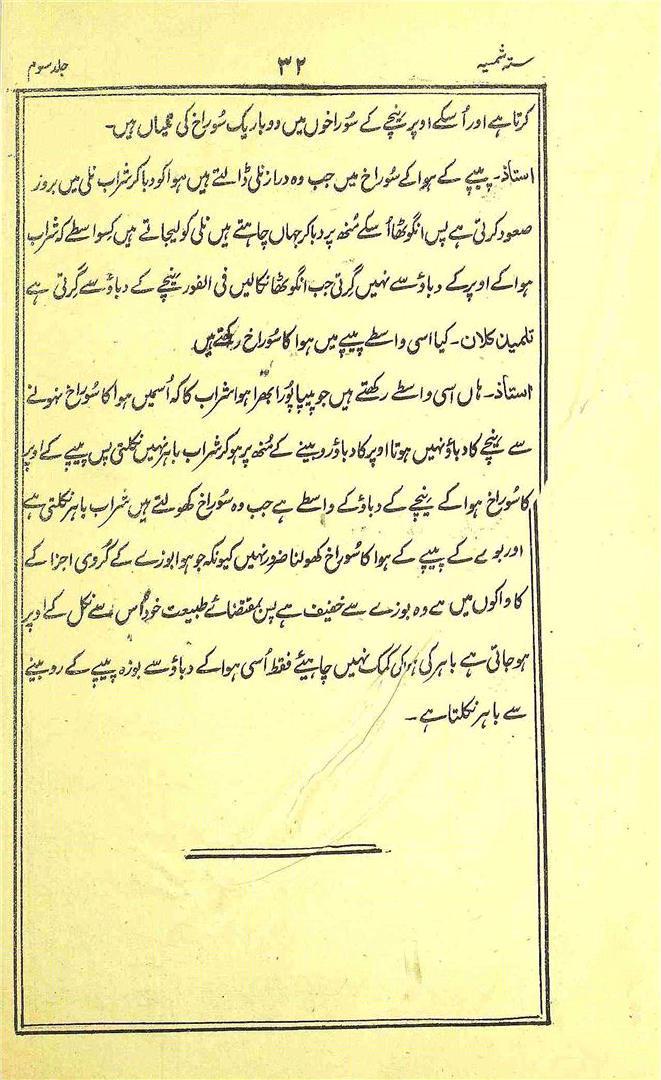 ستہ شمسیہ ۳۲ جلد سوم
کرتا ہے اور اُسکے اوپر نیچے کے سوراخوں میں دو باریک سُوراخ کی نلیاں ہیں۔
استاذ۔ پیپے کے ہوا کے سُوراخ میں جب وہ دراز نلی ڈالتے ہیں ہوا کو دبا کر شراب نلی میں بروز
صعود کرتی ہے پس انگوٹھا اُسکے مُنھ پر دبا کر جہاں چاہتے ہیں نلی کو لیجاتے ہیں کسواسطے کہ شراب
ہوا کے اوپر کے دباؤ سے نہیں گرتی جب انگوٹھا نکالیں فی الفور نیچے کے دباؤ سے گرتی ہے
تلمیذ کلان۔ کیا اسی واسطے پیپے میں ہوا کا سُوراخ رکھتے ہیں
استاذ۔ ہاں اسی واسطے رکھتے ہیں جو پیپا پُورا بھرا ہوا شراب کا کہ اُسمیں ہوا کا سُوراخ نہونے
سے نیچے کا دباؤ نہیں ہوتا اوپر کا دباؤ روبینے کے مُنھ پر ہو کر شراب باہر نہیں نکلتی پس پیپے کے اوپر
کا سُوراخ ہوا کے نیچے کے دباؤ کے واسطے ہے جب وہ سُوراخ کھولتے ہیں شراب باہر نکلتی ہے
اور بوزے کے پیپے کے ہوا کا سُوراخ کھولنا ضرور نہیں کیونکہ جو ہوا بوزے کے کُروی اجزا کے
کاواکوں میں ہے وہ بوزے سے خفیف ہے پس بمقتضائے طبیعت خود اُس سے نکل کے اوپر
ہو جاتی ہے باہر کی ہوا کی کمک نہیں چاہیئے فقط اُسی ہوا کے دباؤ سے بوزہ پیپے کے روبینے
سے باہر نکلتا ہے۔